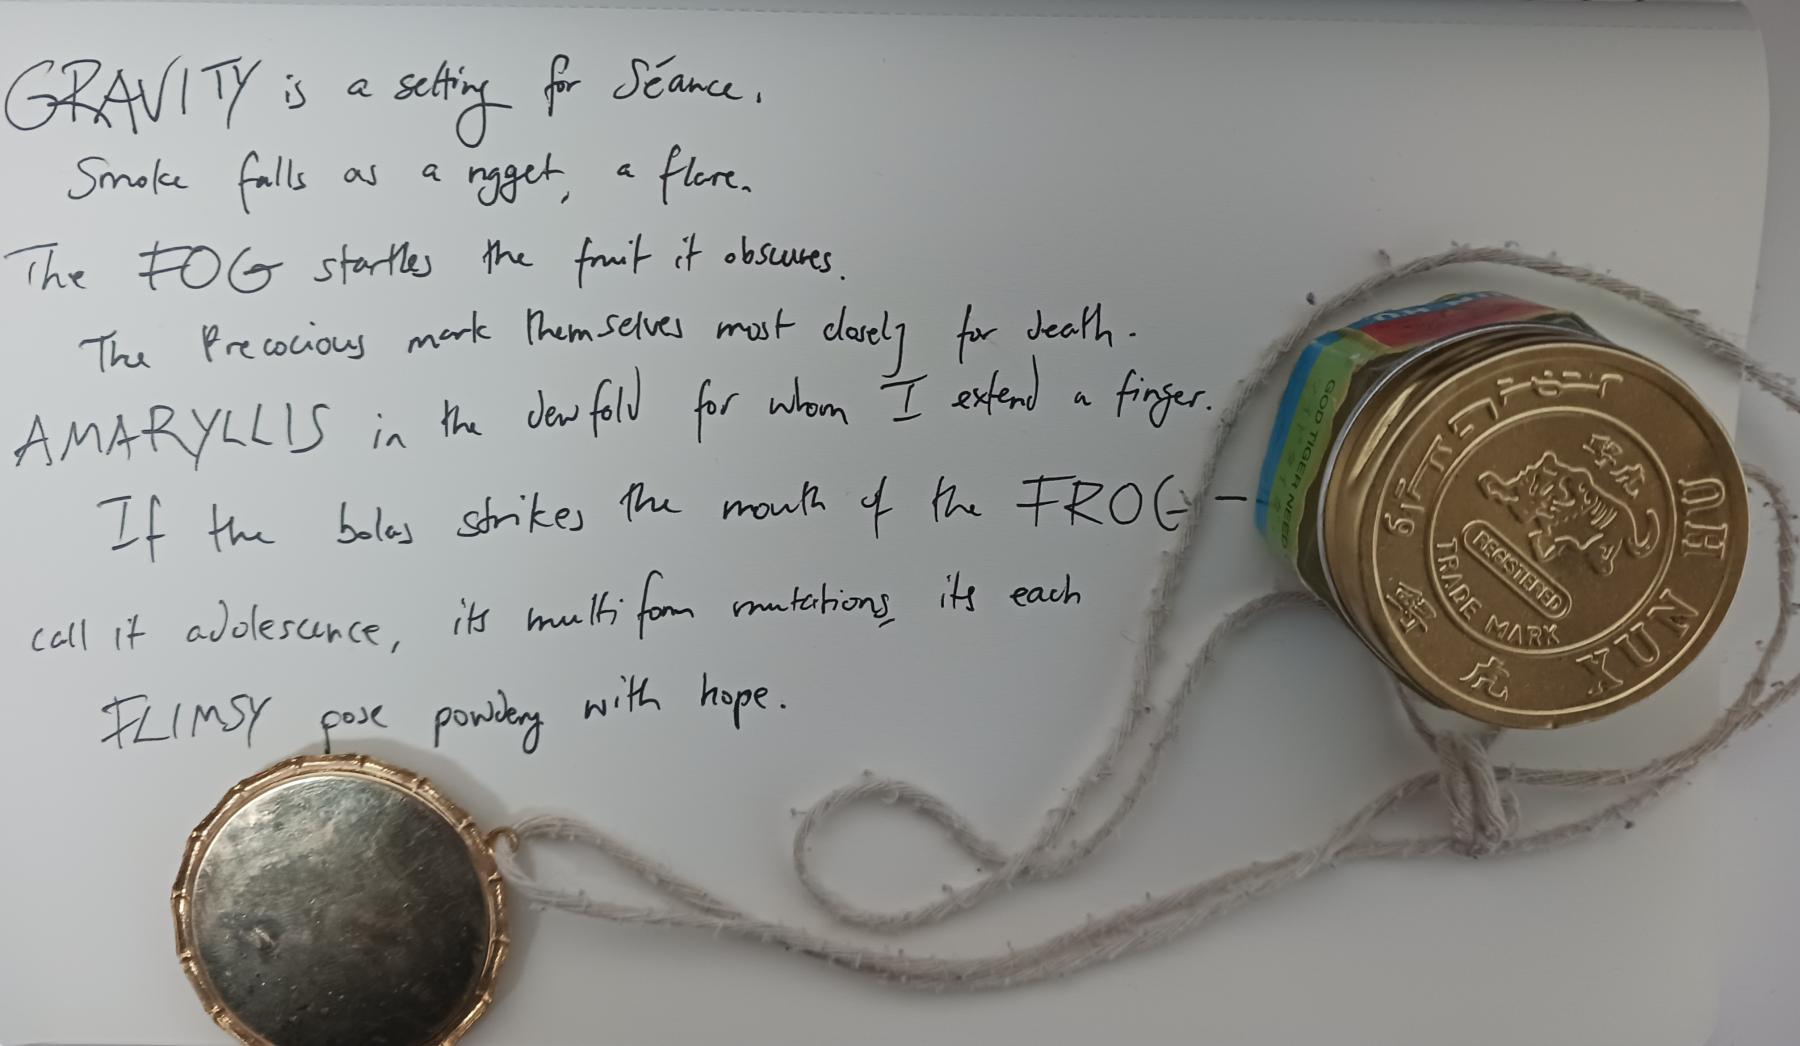 GRAVITY is a setting for Séance.
Smoke falls as a ngget, a flare.
The FOG startles the fruit it obscures.
The Precocious mark themselves most closely for death.
AMARYLLIS in the dewfold for whom I extend a finger.
If the bolas strikes the mouth of the FROG —
call it adolescence, its multiform mutations, its each
FLIMSY pose powdery with hope.
GOD TIGER NEED
HU XUN
REGISTERED
TRADE MARK
虎